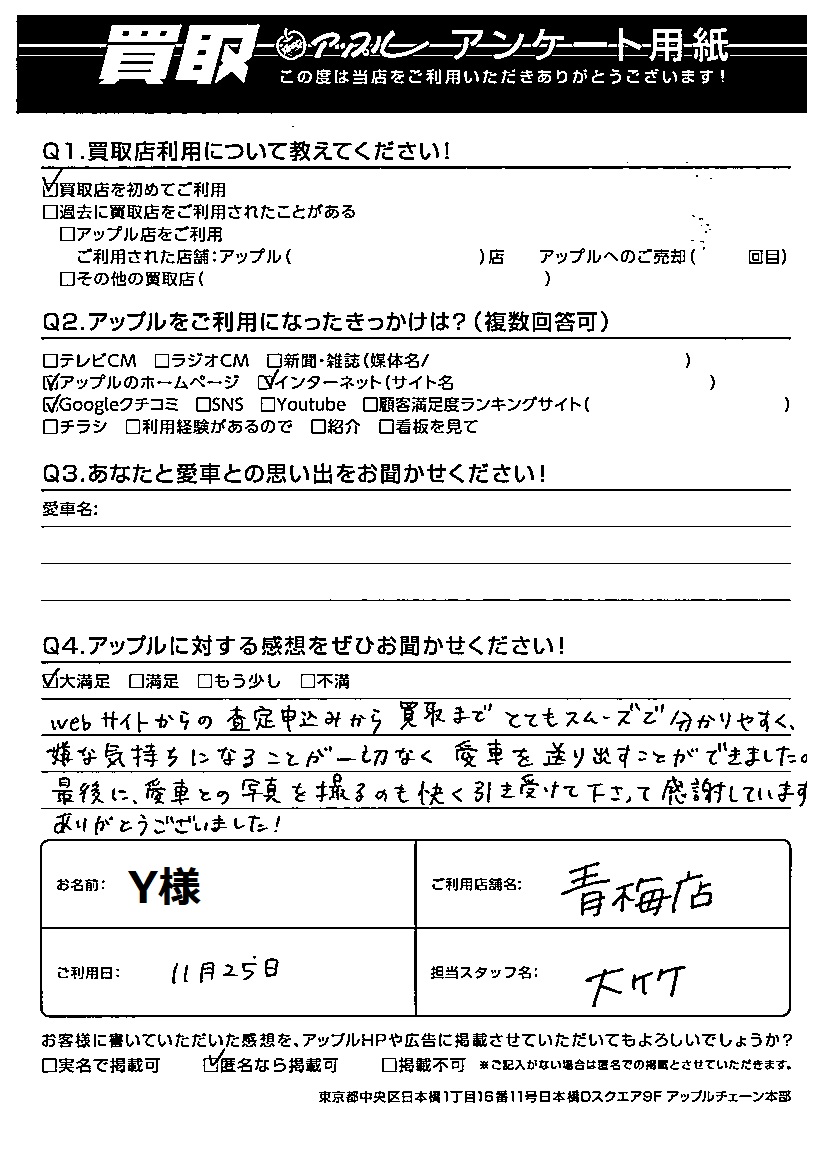 買取 アップル アンケート用紙
この度は当店をご利用いただきありがとうございます!
Q1.買取店利用について教えてください!
☑買取店を初めてご利用
□過去に買取店をご利用されたことがある
□アップル店をご利用
ご利用された店舗:アップル( )店 アップルへのご売却( 回目)
□その他の買取店( )
Q2.アップルをご利用になったきっかけは?(複数回答可)
□テレビCM □ラジオCM □新聞・雑誌(媒体名/ )
☑アップルのホームページ ☑インターネット(サイト名 )
☑Googleクチコミ □SNS □Youtube □顧客満足度ランキングサイト( )
□チラシ □利用経験があるので □紹介 □看板を見て
Q3.あなたと愛車との思い出をお聞かせください!
愛車名:
Q4.アップルに対する感想をぜひお聞かせください!
☑大満足 □満足 □もう少し □不満
webサイトからの査定申込みから買取までとてもスムーズで分かりやすく、
嫌な気持ちになることが一切なく愛車を送り出すことができました。
最後に、愛車との写真を撮るのも快く引き受けて下さって感謝しています
ありがとうございました!
お名前: Y様 ご利用店舗名: 青梅店
ご利用日: 11月25日 担当スタッフ名: 大竹
お客様に書いていただいた感想を、アップルHPや広告に掲載させていただいてもよろしいでしょうか?
□実名で掲載可 ☑匿名なら掲載可 □掲載不可 ※ご記入がない場合は匿名での掲載とさせていただきます。
東京都中央区日本橋1丁目16番11号日本橋Dスクエア9F アップルチェーン本部